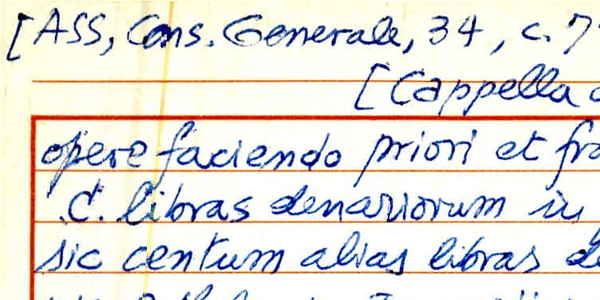 [ASS, Cons. Generale, 34, c. 7
[Cappella
opere faciendo priori et fra
.C. libras denariorum in
sic centum alias libras de